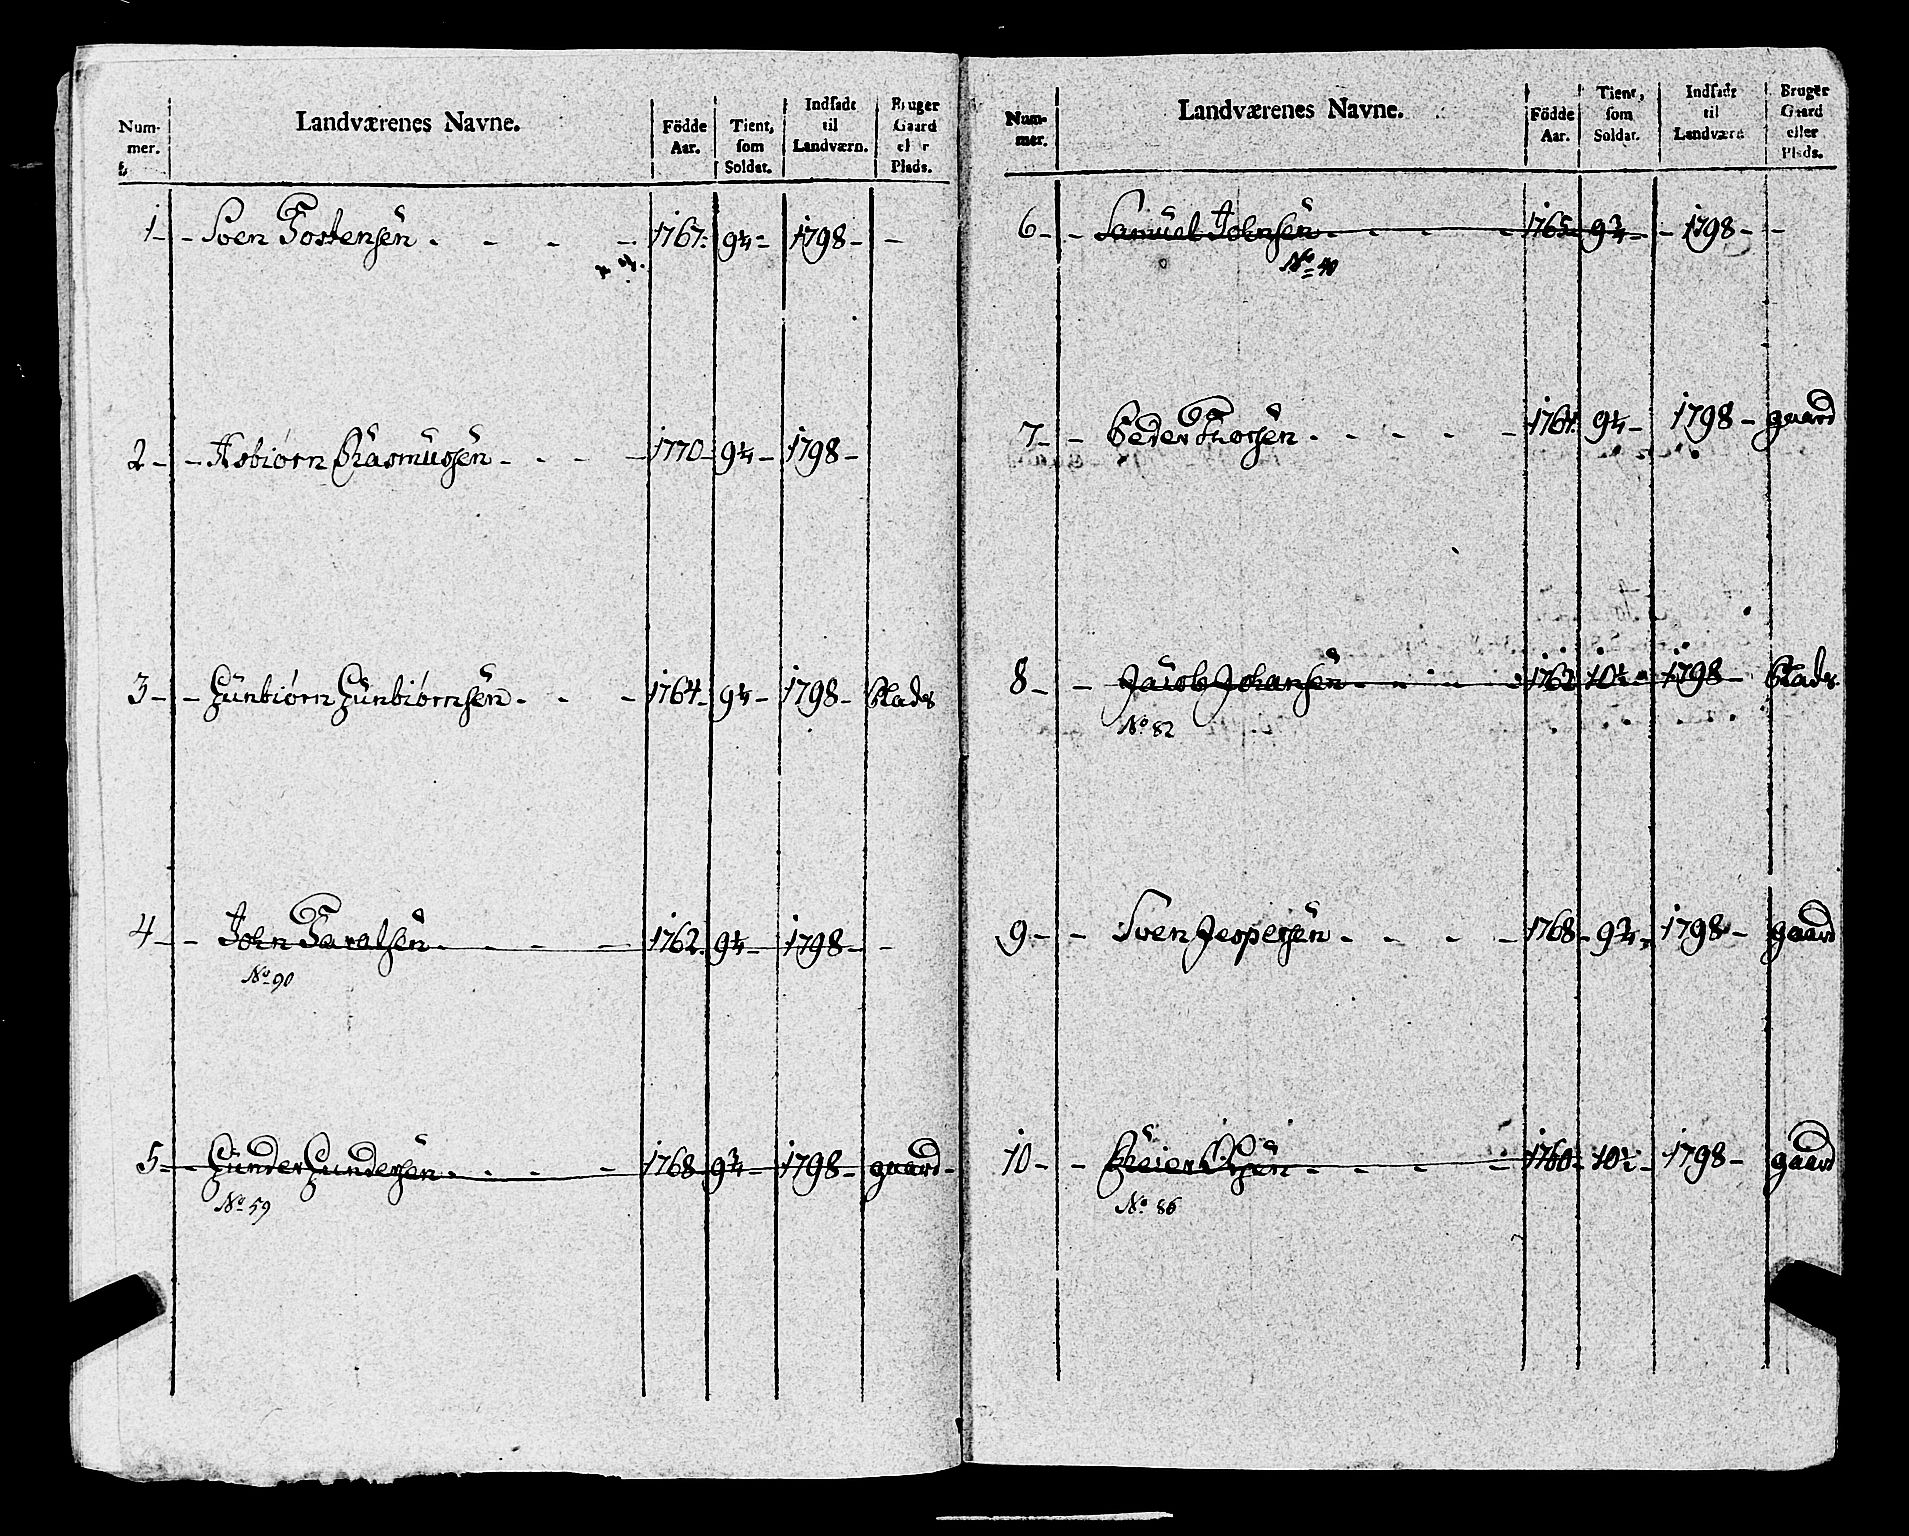 Num-
mer.
Landværenes Navne.
Födde
Aar.
Tient,
som
Soldat.
Indsadt
til
Landværn.
Bruger
Gaard
eller
Plads.
1 - - Sven Tostensën - - - - 1767. 9¼ - 1798 - -
2 - - Asbiørn Rasmussen - - - - 1770 - 9¼ - 1798 -
3 - - Günbiørn Günbiørnsën - - - 1764 - 9¼ - 1798 - Plads
4 - - John Taralsen - - - - 1762. 9¼ - 1798 - -
No 90
5 - - Günder Gundersen - - - - 1768 9¾ - 1798 - gaard -
No 59
Num-
mer.
Landværenes Navne.
Födde
Aar.
Tient,
som
Soldat.
Indsadt
til
Landværn
Bruger
Gaard
eller
Plads.
6 - - Samüel Johnsën - - - - 1765 - 9¾ - - 1798 - -
No 40
7 - - Peder Thorsen - - - - - 9¼ - 1798 - gaard
8 - - Jacob Johansen - - - - 1762 10½ - 1798 - Plads
No 82
9 - - Sven Jespersën - - - - 1768 - 9¾ - 1798 - gaard
10 - - Reier Olsën - - - - 1760 - 10½ - 1798 - gaard
No 86